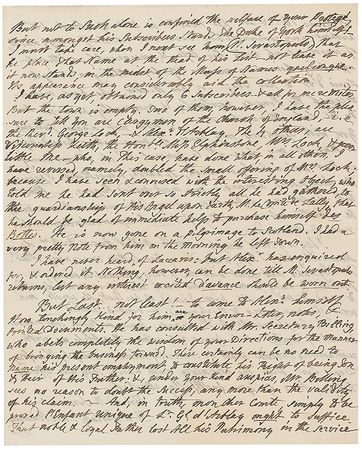 But not to Sark alone is confined the welfare of your Protegé,
since amongst his Subscribers stands the Duke of York himself.
I must take care, when I next see him (M. Sevastopolo), has
be place that Name at the head of his List — not leave it as
it now stands, in the midst of the Mass of Names
appearance may considerably aid the collection.
I have, as yet, obtained only 6 Subscribers, & all for
but the Tom is empty. Two of them, however, I have the plea-
sure to tell you are Clergymen of the Church of England, i.e.
the Rev. George Lock, & Alex. d'Arblay. The 4 others, are
Keith, the Hon. Miss Elphinstone, Mrs. Lock, & poor
little Me — who, in this case, have done what, in all others, I
have reversed, namely, doubled the small offering of Mrs. Lock,
because I have seen & conversed with the interesting Greek, who
told me he had sent me
the guardianship of his Angel upon Earth, M. le Comte de Lally, that
he should be glad of immediate help to purchase himself some
He is now gone on a pilgrimage to Scotland. I had a
very pretty Note from him on the Morning he left Town.
I have never heard of Lucans: but Alex. has enquired
for, & ordered it. Nothing, however, can be done till M. Sevastopolo
returns, lest any interest excited in advance should be worn out.
But, Last, not least! — to come to Alex. himself
How touchingly kind for him, are your Cover & other notes, &
printed documents. He has consulted with Mr. Secretary Bolling
who abets completely the wisdom of your Directions for the manner
of bringing the business forward. There certainly can be no need to
name his present employment to constitute his Rights of being Son
& Heir of his Father: & under your kind auspices, Mr. Bolling
sees no reason to doubt the success, any more than the validity
of his claim. — And, in truth, mon cher Comte, simply to be
proved l'Enfant unique of Lt. Gl. d'Arblay ought to suffice
That noble & loyal Father lost all his Patrimony in the service